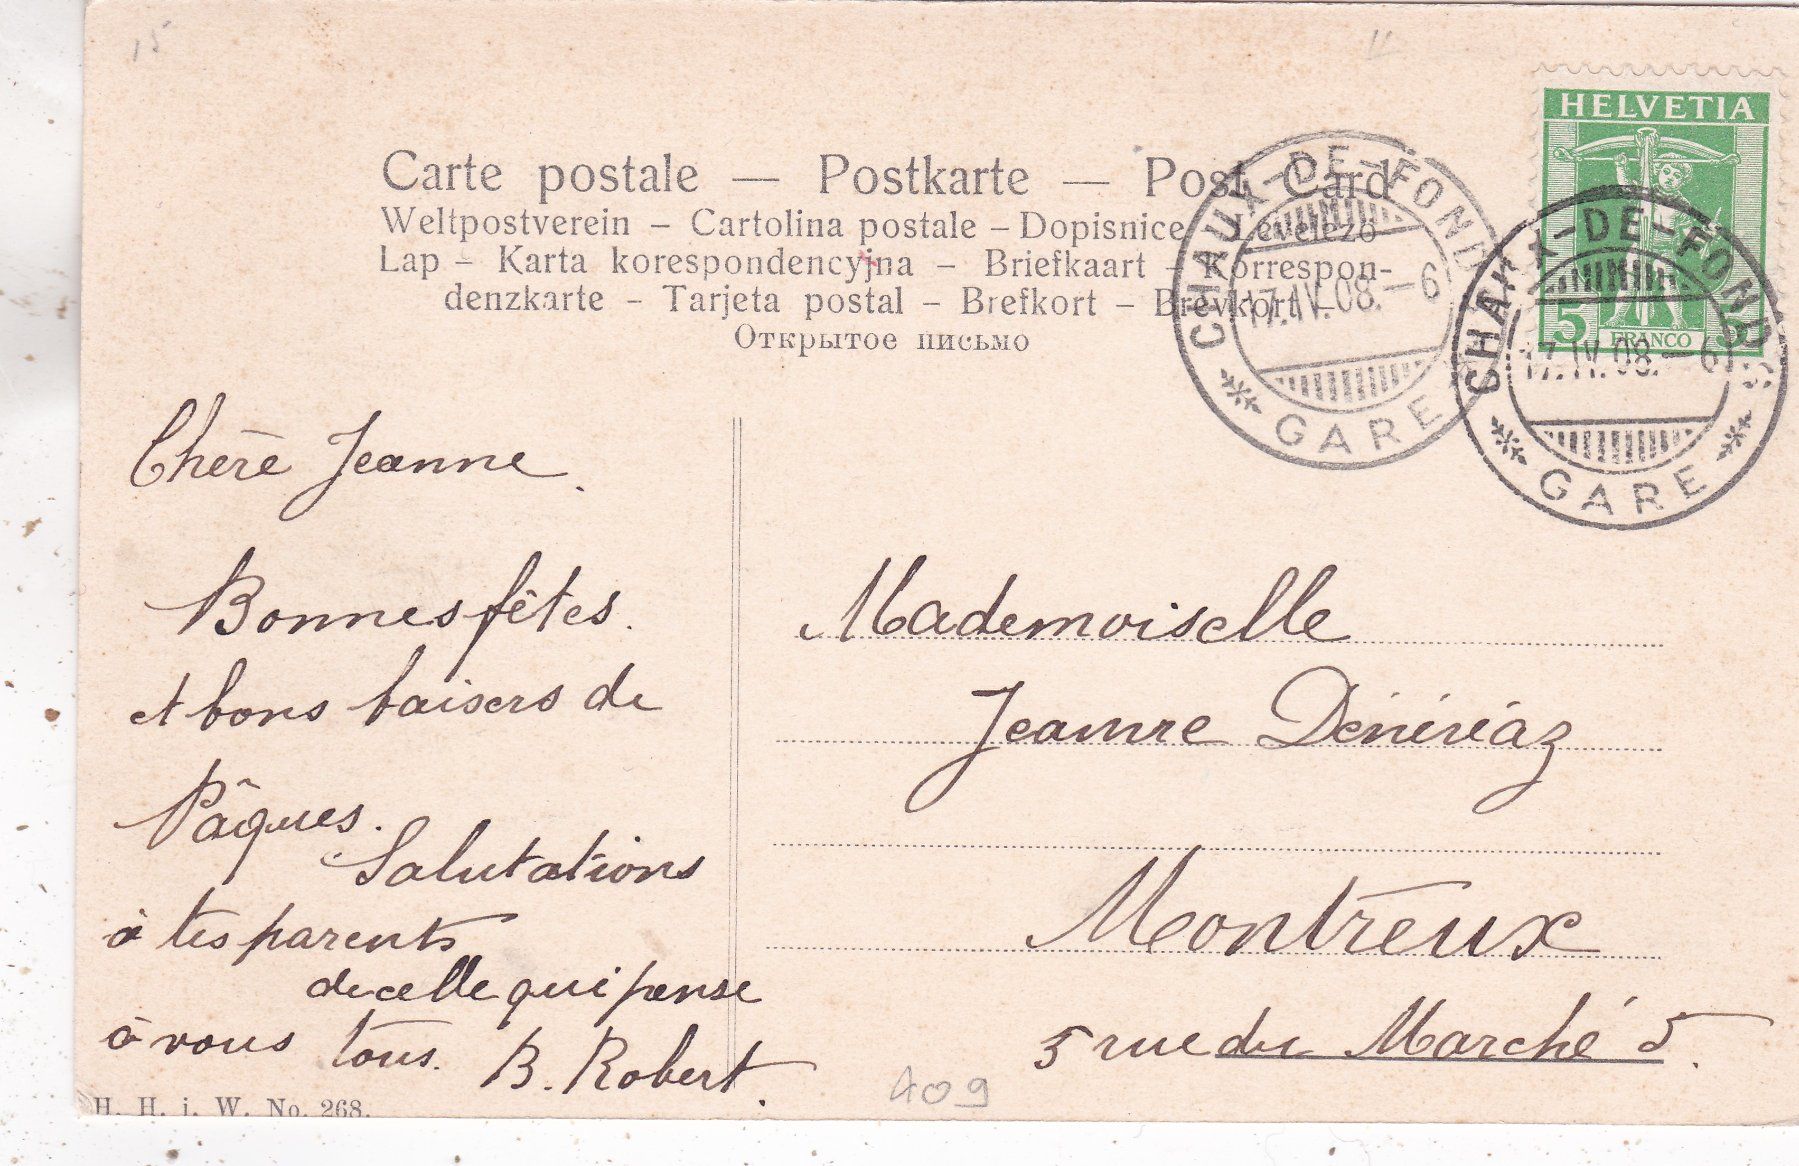 15
Carte postale — Postkarte — Post Card
Weltpostverein – Cartolina postale – Dopisnice – Levelezö
Lap – Karta korespondencyjna – Briefkaart – Korrespon-
denzkarte – Tarjeta postal – Brefkort – Brevkort –
Открытое письмо
HELVETIA
5 FRANCO 5
CHAUX-DE-FONDS
17.IV.08.–6
GARE
CHAUX-DE-FONDS
17.IV.08.–6
GARE
Chère Jeanne.
Bonnes fêtes.
et bons baisers de
Pâques.
Salutations
à tes parents
de celle qui pense
à vous tous.
B. Robert.
Mademoiselle
Jeanne Dénéréaz
Montreux
5 rue du Marché 5.
409
H. H. i. W. No. 268.